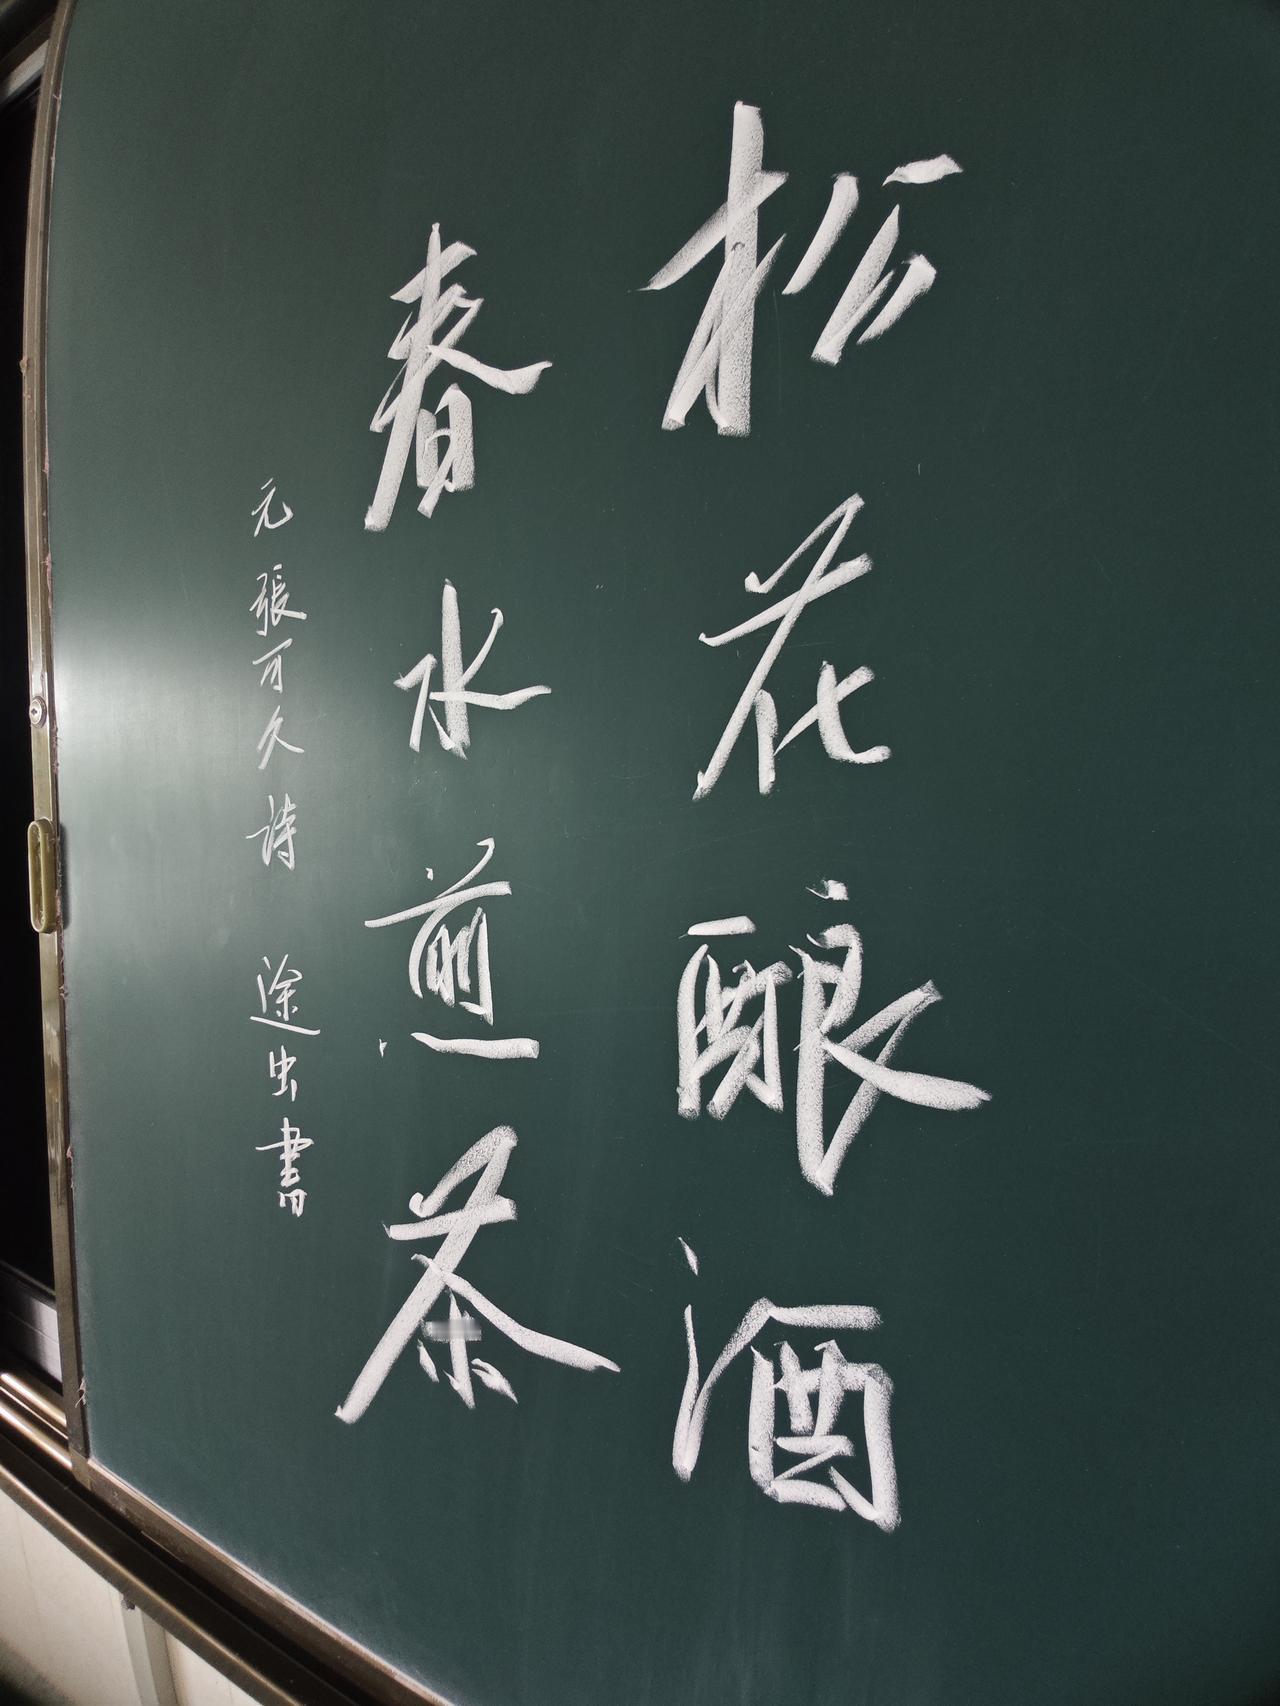 松花酿酒
春水煎茶
元張可久詩 途虫書